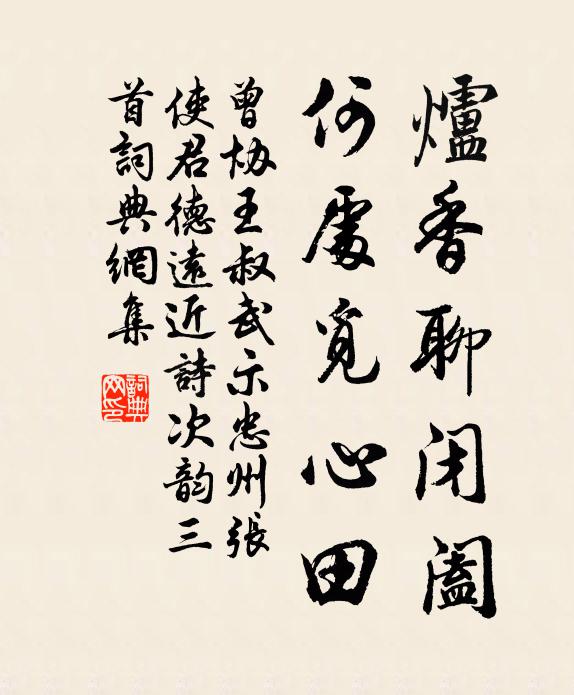 爐香聊閉闔
何處覓心田
曾協王叔武示忠州張
使君德遠近詩次韵三
首詞典網集
詞典網印